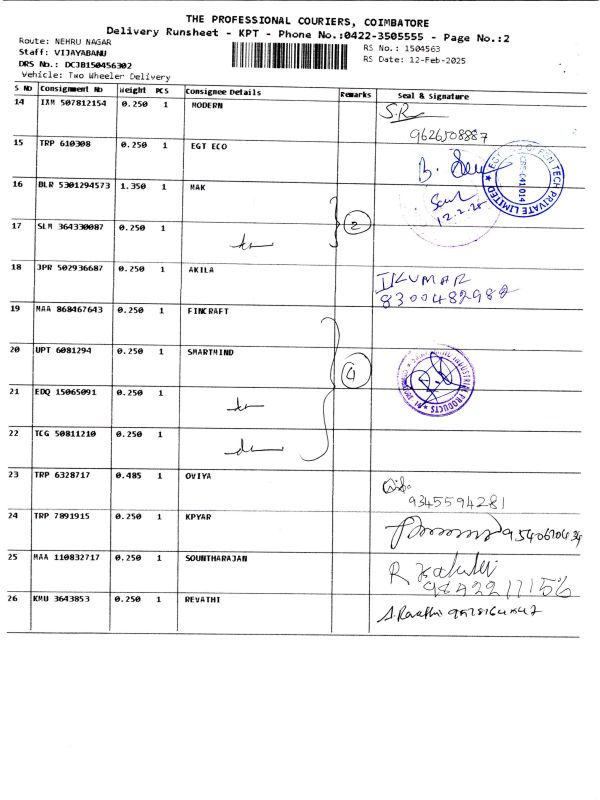 THE PROFESSIONAL COURIERS, COIMBATORE
Delivery Runsheet - KPT - Phone No.:0422-3505555 - Page No.:2
Route: NEHRU NAGAR
RS No. : 1504563
Staff: VIJAYABANU
RS Date: 12-Feb-2025
DRS No.: DCJB150456302
Vehicle: Two Wheeler Delivery
S No Consignment No Weight PCS Consignee Details Remarks Seal & Signature
14 IXM 507812154 0.250 1 MODERN S.R
9626508887
15 TRP 610308 0.250 1 EGT ECO
16 BLR 5301294573 1.350 1 MAK
12.2.25
17 SLM 364330087 0.250 1 2
18 JPR 502936687 0.250 1 AKILA
8300482982
19 MAA 868467643 0.250 1 FINCRAFT
20 UPT 6081294 0.250 1 SMARTMIND 4
21 EDQ 15065091 0.250 1
22 TCG 50811210 0.250 1
23 TRP 6328717 0.485 1 OVIYA
9345594281
24 TRP 7891915 0.250 1 KPYAR
25 MAA 110832717 0.250 1 SOUNTHARAJAN
26 KMU 3643853 0.250 1 REVATHI